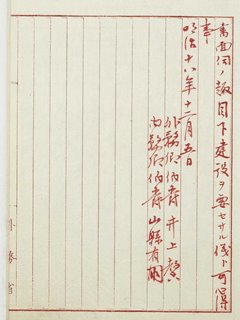 書面伺ノ趣目下建設ヲ要セサル儀ト可得
事
明治十八年十二月五日
外務卿伯爵井上馨
内務卿伯爵山縣有朋
外務省